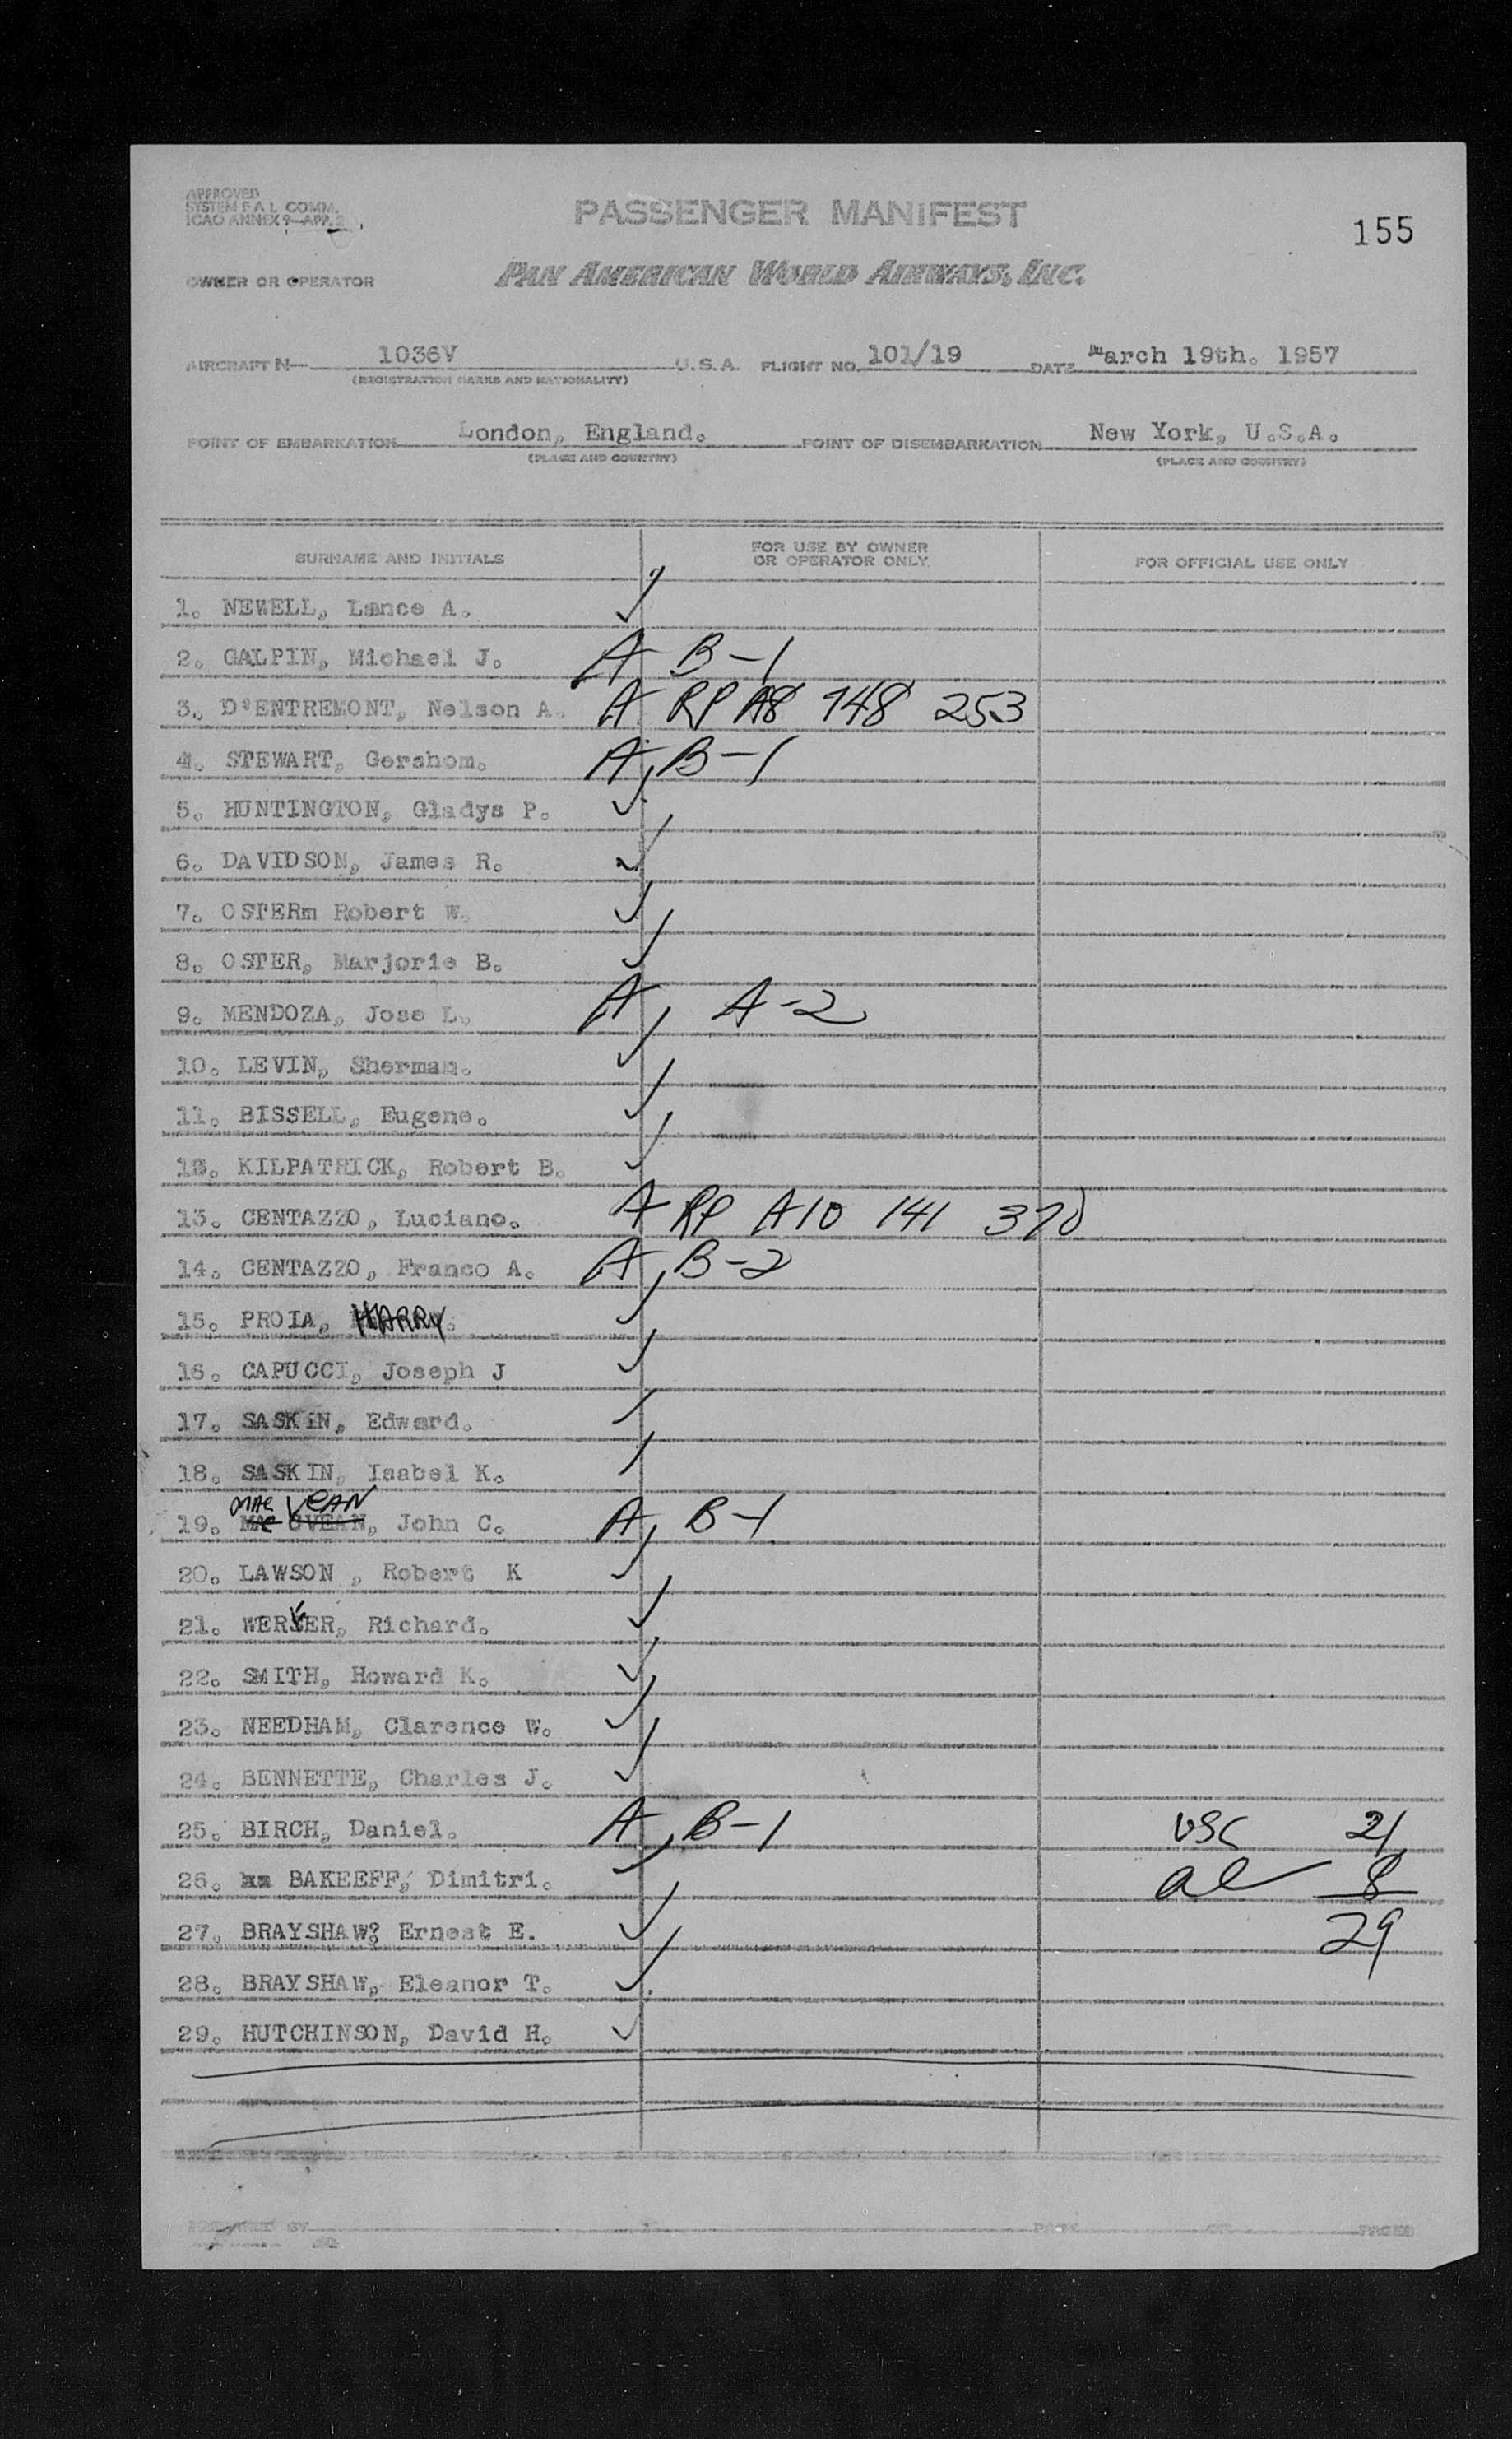 APPROVED
SYSTEM F A L COMM.
ICAO ANNEX 9—APP. 2
PASSENGER MANIFEST
155
OWNER OR OPERATOR PAN AMERICAN WORLD AIRWAYS, INC.
AIRCRAFT N— 1036V U.S.A. FLIGHT NO. 101/19 DATE March 19th. 1957
(REGISTRATION MARKS AND NATIONALITY)
POINT OF EMBARKATION London, England. POINT OF DISEMBARKATION New York, U.S.A.
(PLACE AND COUNTRY) (PLACE AND COUNTRY)
SURNAME AND INITIALS FOR USE BY OWNER OR OPERATOR ONLY FOR OFFICIAL USE ONLY
1. NEWELL, Lance A.
2. GALPIN, Michael J. A B-1
3. D'ENTREMONT, Nelson A. A RP A8 748 253
4. STEWART, Gershom. A B-1
5. HUNTINGTON, Gladys P.
6. DAVIDSON, James R.
7. OSTERm Robert W.
8. OSTER, Marjorie B.
9. MENDOZA, Jose L. A A-2
10. LEVIN, Sherman.
11. BISSELL, Eugene.
12. KILPATRICK, Robert B.
13. CENTAZZO, Luciano. A RP A10 141 370
14. CENTAZZO, Franco A. A B-2
15. PROIA, HARRY.
16. CAPUCCI, Joseph J
17. SASKIN, Edward.
18. SASKIN, Isabel K.
mac VEAN
19. John C. A B-1
20. LAWSON , Robert K
21. Richard.
22. SMITH, Howard K.
23. NEEDHAM, Clarence W.
24. BENNETTE, Charles J.
25. BIRCH, Daniel. A B-1 USC 21
26. BAKEEFF, Dimitri. al 8
27. BRAYSHAW? Ernest E. 29
28. BRAYSHAW, Eleanor T.
29. HUTCHINSON, David H.
PAGE OF PAGES